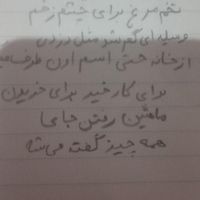 تخم مرغ برای چشم زخم
وسیله ای گم شد مثل دزدی
از خانه حتی اسم اون طرف
برای کار خیر برای خریدن
ماشین رفتن جایی
همه چیز گفته می شه